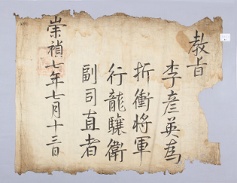 教旨
李彦英為
折衝將軍
行龍驤衛
副司直者
崇禎七年七月十三日